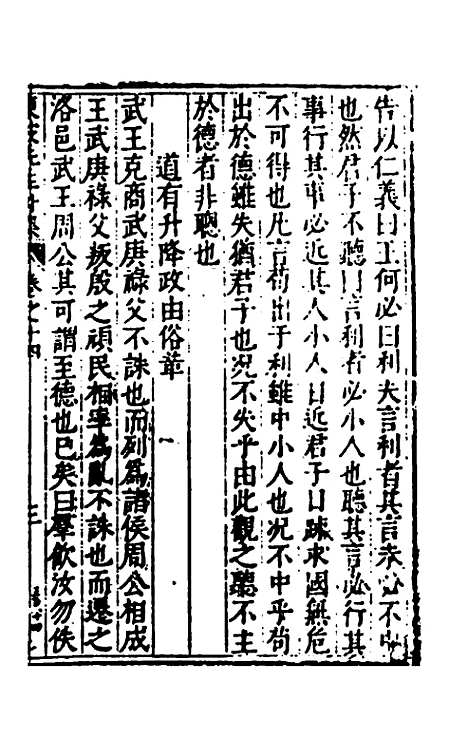 告以仁義曰王何必曰利夫言利者其言未必不中
也然君子不聽曰言利者必小人也聽其言必行其
事行其事必近其人小人日近君子日踈求國無危
不可得也凡言苟出于利雖中小人也况不中乎苟
出於德雖失猶君子也况不失乎由此觀之聽不主
於德者非聰也
道有升降政由俗革
武王克商武庚祿父不誅也而列爲諸侯周公相成
王武庚祿父叛殷之頑民相率爲亂不誅也而遷之
洛邑武王周公其可謂至德也已矣曰羣飲汝勿佚
卷之十四 三